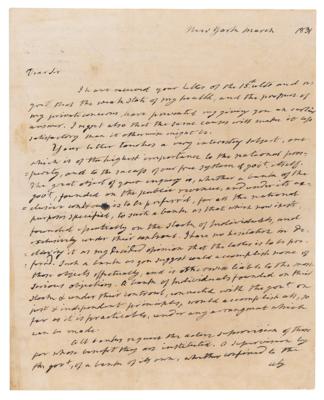 New York March 1831
Dear Sir
I have received your letter of the 15th ulto and re-
gret that the weak state of my health, and the pressure of
my private concerns, have prevented my giving you an earlier
answer. I regret also that the same causes will make it less
satisfactory than it otherwise might be.
Your letter touches a very interesting subject, one
which is of the highest importance to the national pros-
perity, and to the success of our free system of govt. itself.
The great object of your enquiry is, whether a bank of the
govt. founded on the public revenue, and under its ex-
clusive controul is to be preferred, for all the national
purposes specified, to such a bank as that which now exists,
founded partly on the stock of individuals, and
exclusively under their controul. I have no hesitation in de-
claring it as my decided opinion that the latter is to be pre-
ferred. Such a bank as you suggest could accomplish none of
those objects effectually, and is otherwise liable to the most
serious objections. A bank of individuals founded on their
stock & under their controul, connected with the govt. on
just & independent principles, would accomplish all, so
far as it is practicable, under any arrangment which
can be made.
All banks request the active supervision of those
for whose benefit they are instituted. A supervision by
the govt., of a bank of its own, whether confined to the